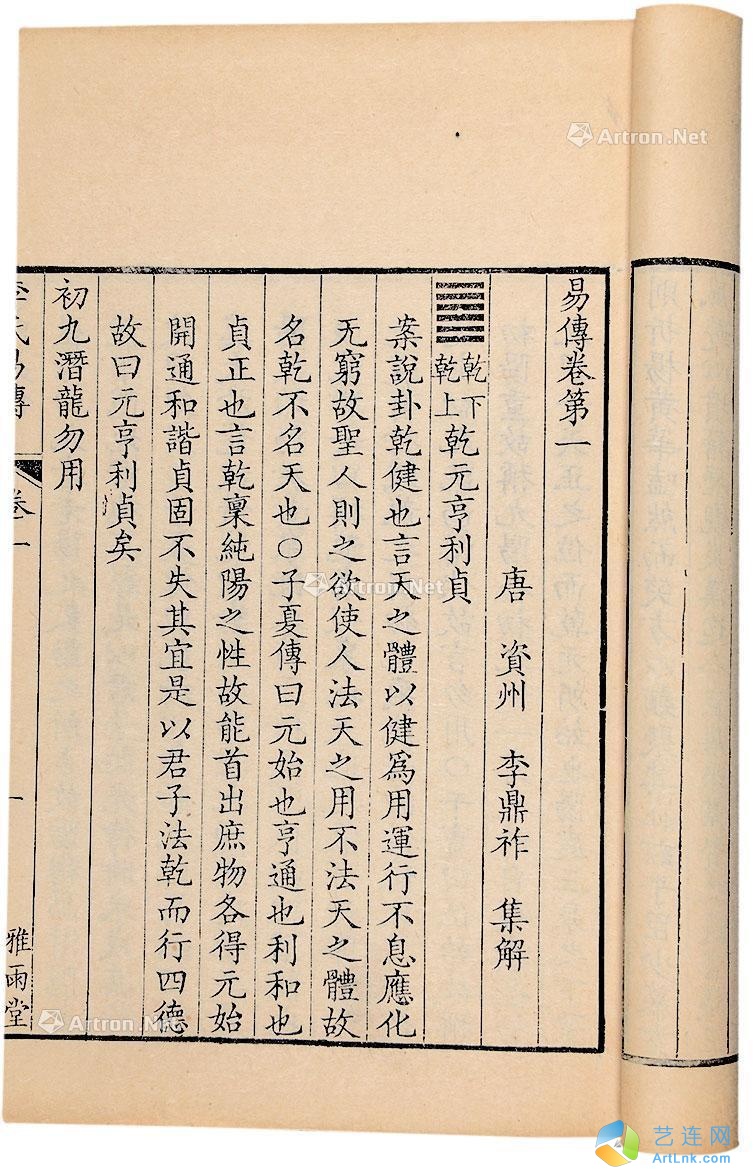 易傳卷第一
唐 資州 李鼎祚 集解
乾下乾上 乾元亨利貞
案說卦乾健也言天之體以健爲用運行不息應化
无窮故聖人則之欲使人法天之用不法天之體故
名乾不名天也○子夏傳曰元始也亨通也利和也
貞正也言乾稟純陽之性故能首出庶物各得元始
開通和諧貞固不失其宜是以君子法乾而行四德
故曰元亨利貞矣
初九潛龍勿用
李氏易傳 卷一 一 雅雨堂
Artron.Net
Artron.Net
Artron.Net
艺连网
ArtLnk.com